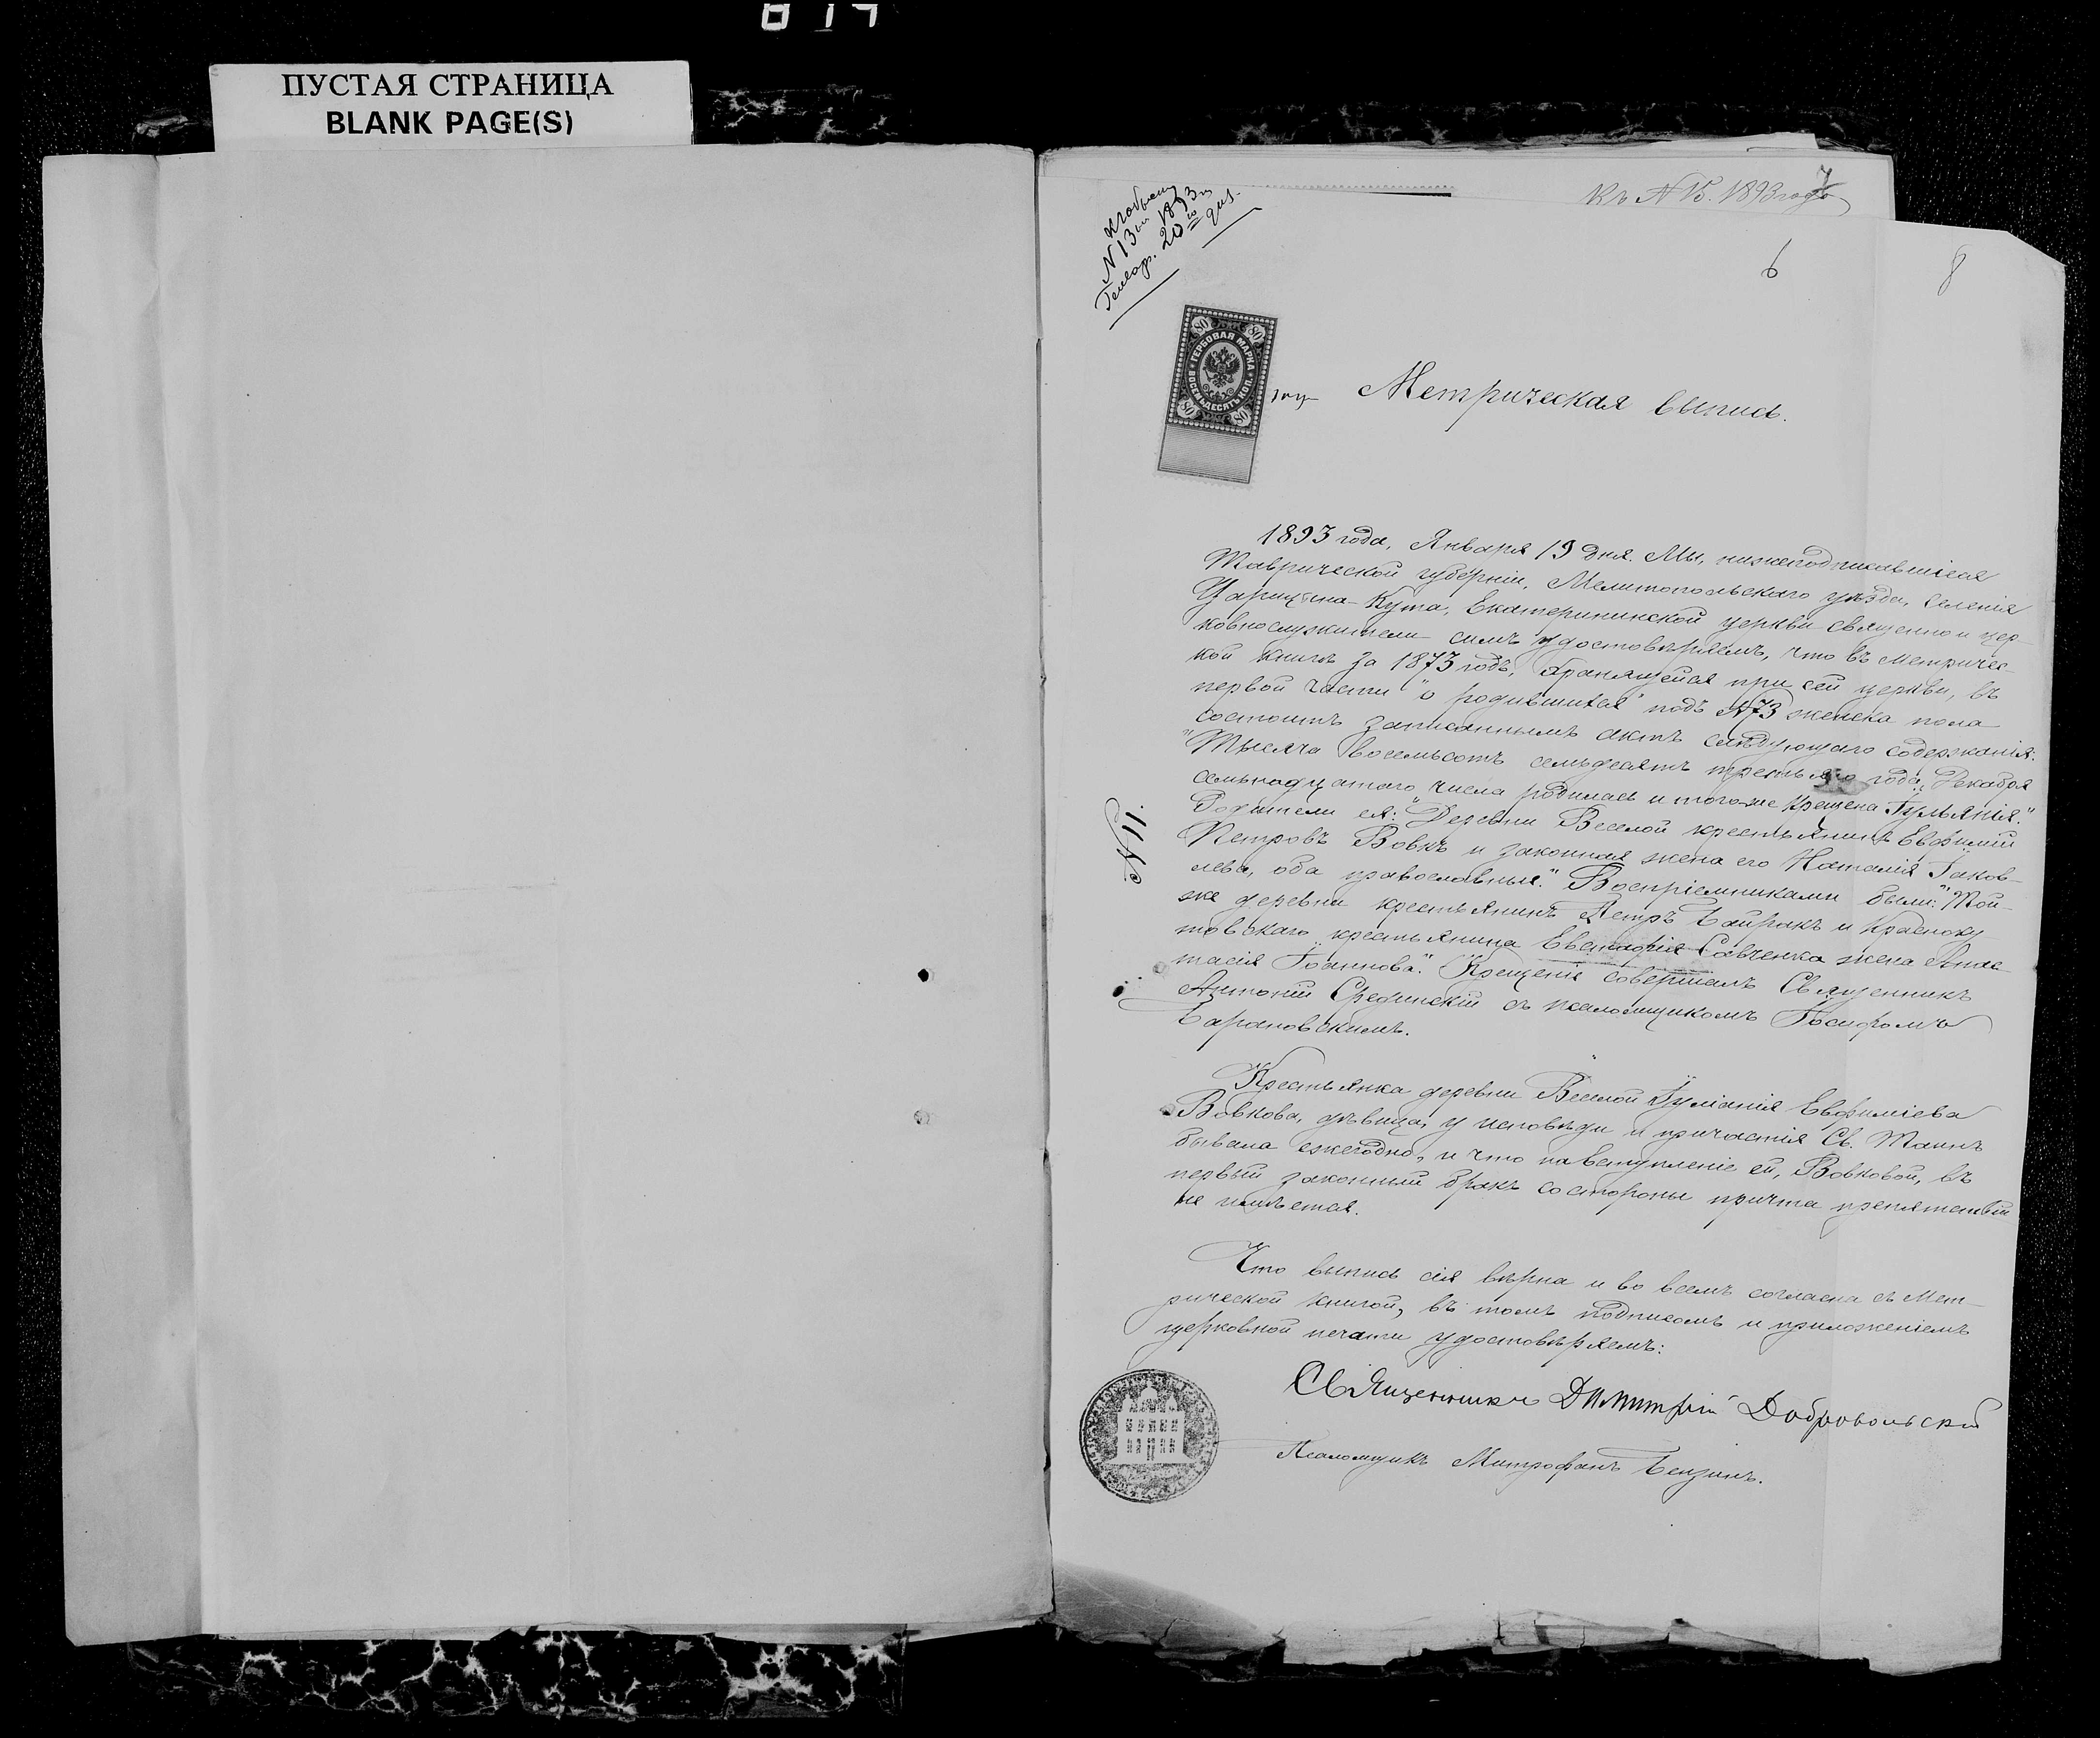 ПУСТАЯ СТРАНИЦА
BLANK PAGE(S)
Къ N 15. 1893 года
7
к обыску
N 13й 1893 г
Генвар. 20го дня.
6
8
80 80
ГЕРБОВАЯ МАРКА
ВОСЕМЬДЕСЯТЪ КОП.
80 80
Метрическая выпись.
1893 года, Января 19 дня. Мы, нижеподписавшіеся
Таврической губерніи, Мелитопольскаго уѣзда, селенія
Царицына-Кута, Екатерининской церкви священно и цер-
ковнослужители симъ удостовѣряемъ, что въ метричес-
кой книгѣ за 1873 годъ, хранящейся при сей церкви, въ
первой части "о родившихся" подъ N73 женска пола
состоитъ записаннымъ актъ слѣдующаго содержанія:
"Тысяча восемьсотъ семьдесятъ третьяго года, Декабря
семьнадцатаго числа родилась и того-же крещена Іульянія."
Родители ея: "Деревни Веселой крестьянинъ Евфимій
Петровъ Вовкъ и законная жена его Наталія Іаков-
лева, оба православные." Воспріемниками были: "Той-
же деревни крестьянинъ Петръ Байракъ и Красноку
товскаго крестьянина Евстафія Савченка жена Анас-
тасія Іоаннова." Крещеніе совершалъ Священникъ
Антоній Срединскій съ псаломщикомъ Іосифомъ
Барановскимъ.
N 11.
Крестьянка деревни Веселой Іуліанія Евфиміева
Вовкова, дѣвица, у исповѣди и причастія Св. Таинъ
бывала ежегодно, и что на вступленіе ей, Вовковой, въ
первый законный бракъ со стороны причта препятствій
не имѣется.
Что выпись сія вѣрна и во всемъ согласна съ Мет-
рической книгой, въ томъ подписомъ и приложеніемъ
церковной печати удостовѣряемъ:
Священникъ Димитрій Добровольскій
Псаломщикъ Митрофанъ Бензинъ.